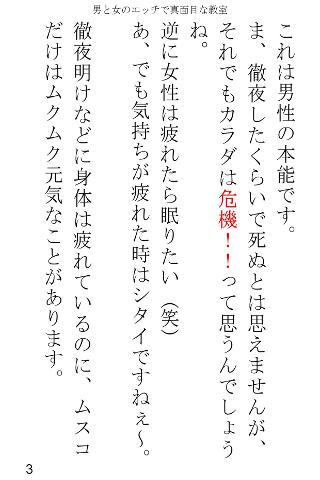 男と女のエッチで真面目な教室
これは男性の本能です。
ま、徹夜したくらいで死ぬとは思えませんが、
それでもカラダは危機！！って思うんでしょう
ね。
逆に女性は疲れたら眠りたい（笑）
あ、でも気持ちが疲れた時はシタイですねぇ～。
徹夜明けなどに身体は疲れているのに、ムスコ
だけはムクムク元気なことがあります。
3